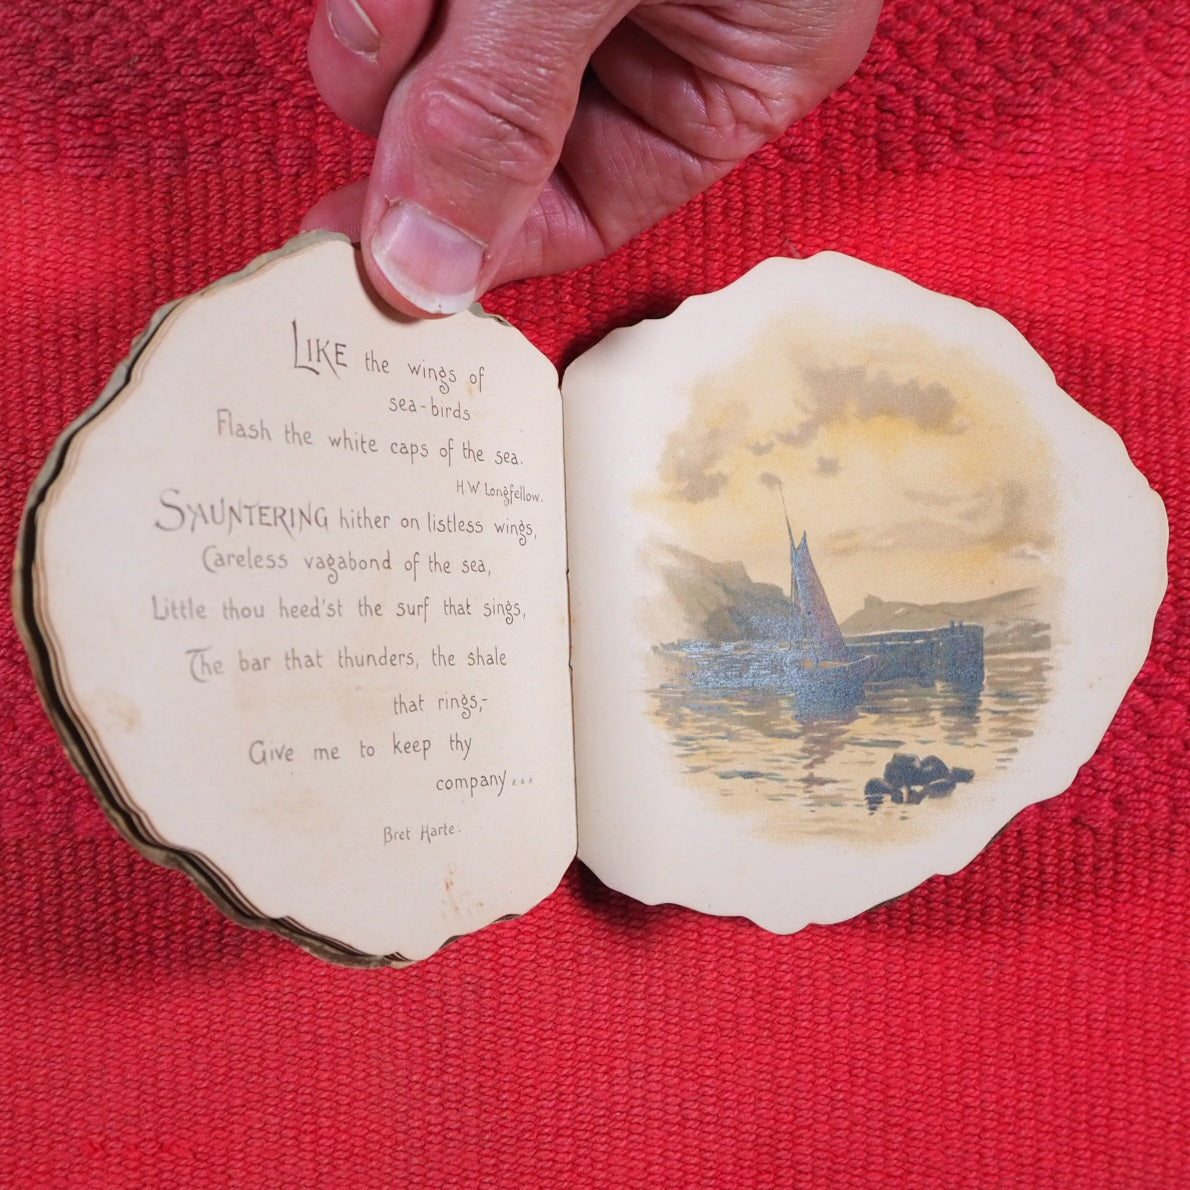 LIKE the wings of
sea-birds
Flash the white caps of the sea.
H.W Longfellow.
SAUNTERING hither on listless wings,
Careless vagabond of the sea,
Little thou heed'st the surf that sings,
The bar that thunders, the shale
that rings,-
Give me to keep thy
company...
Bret Harte.